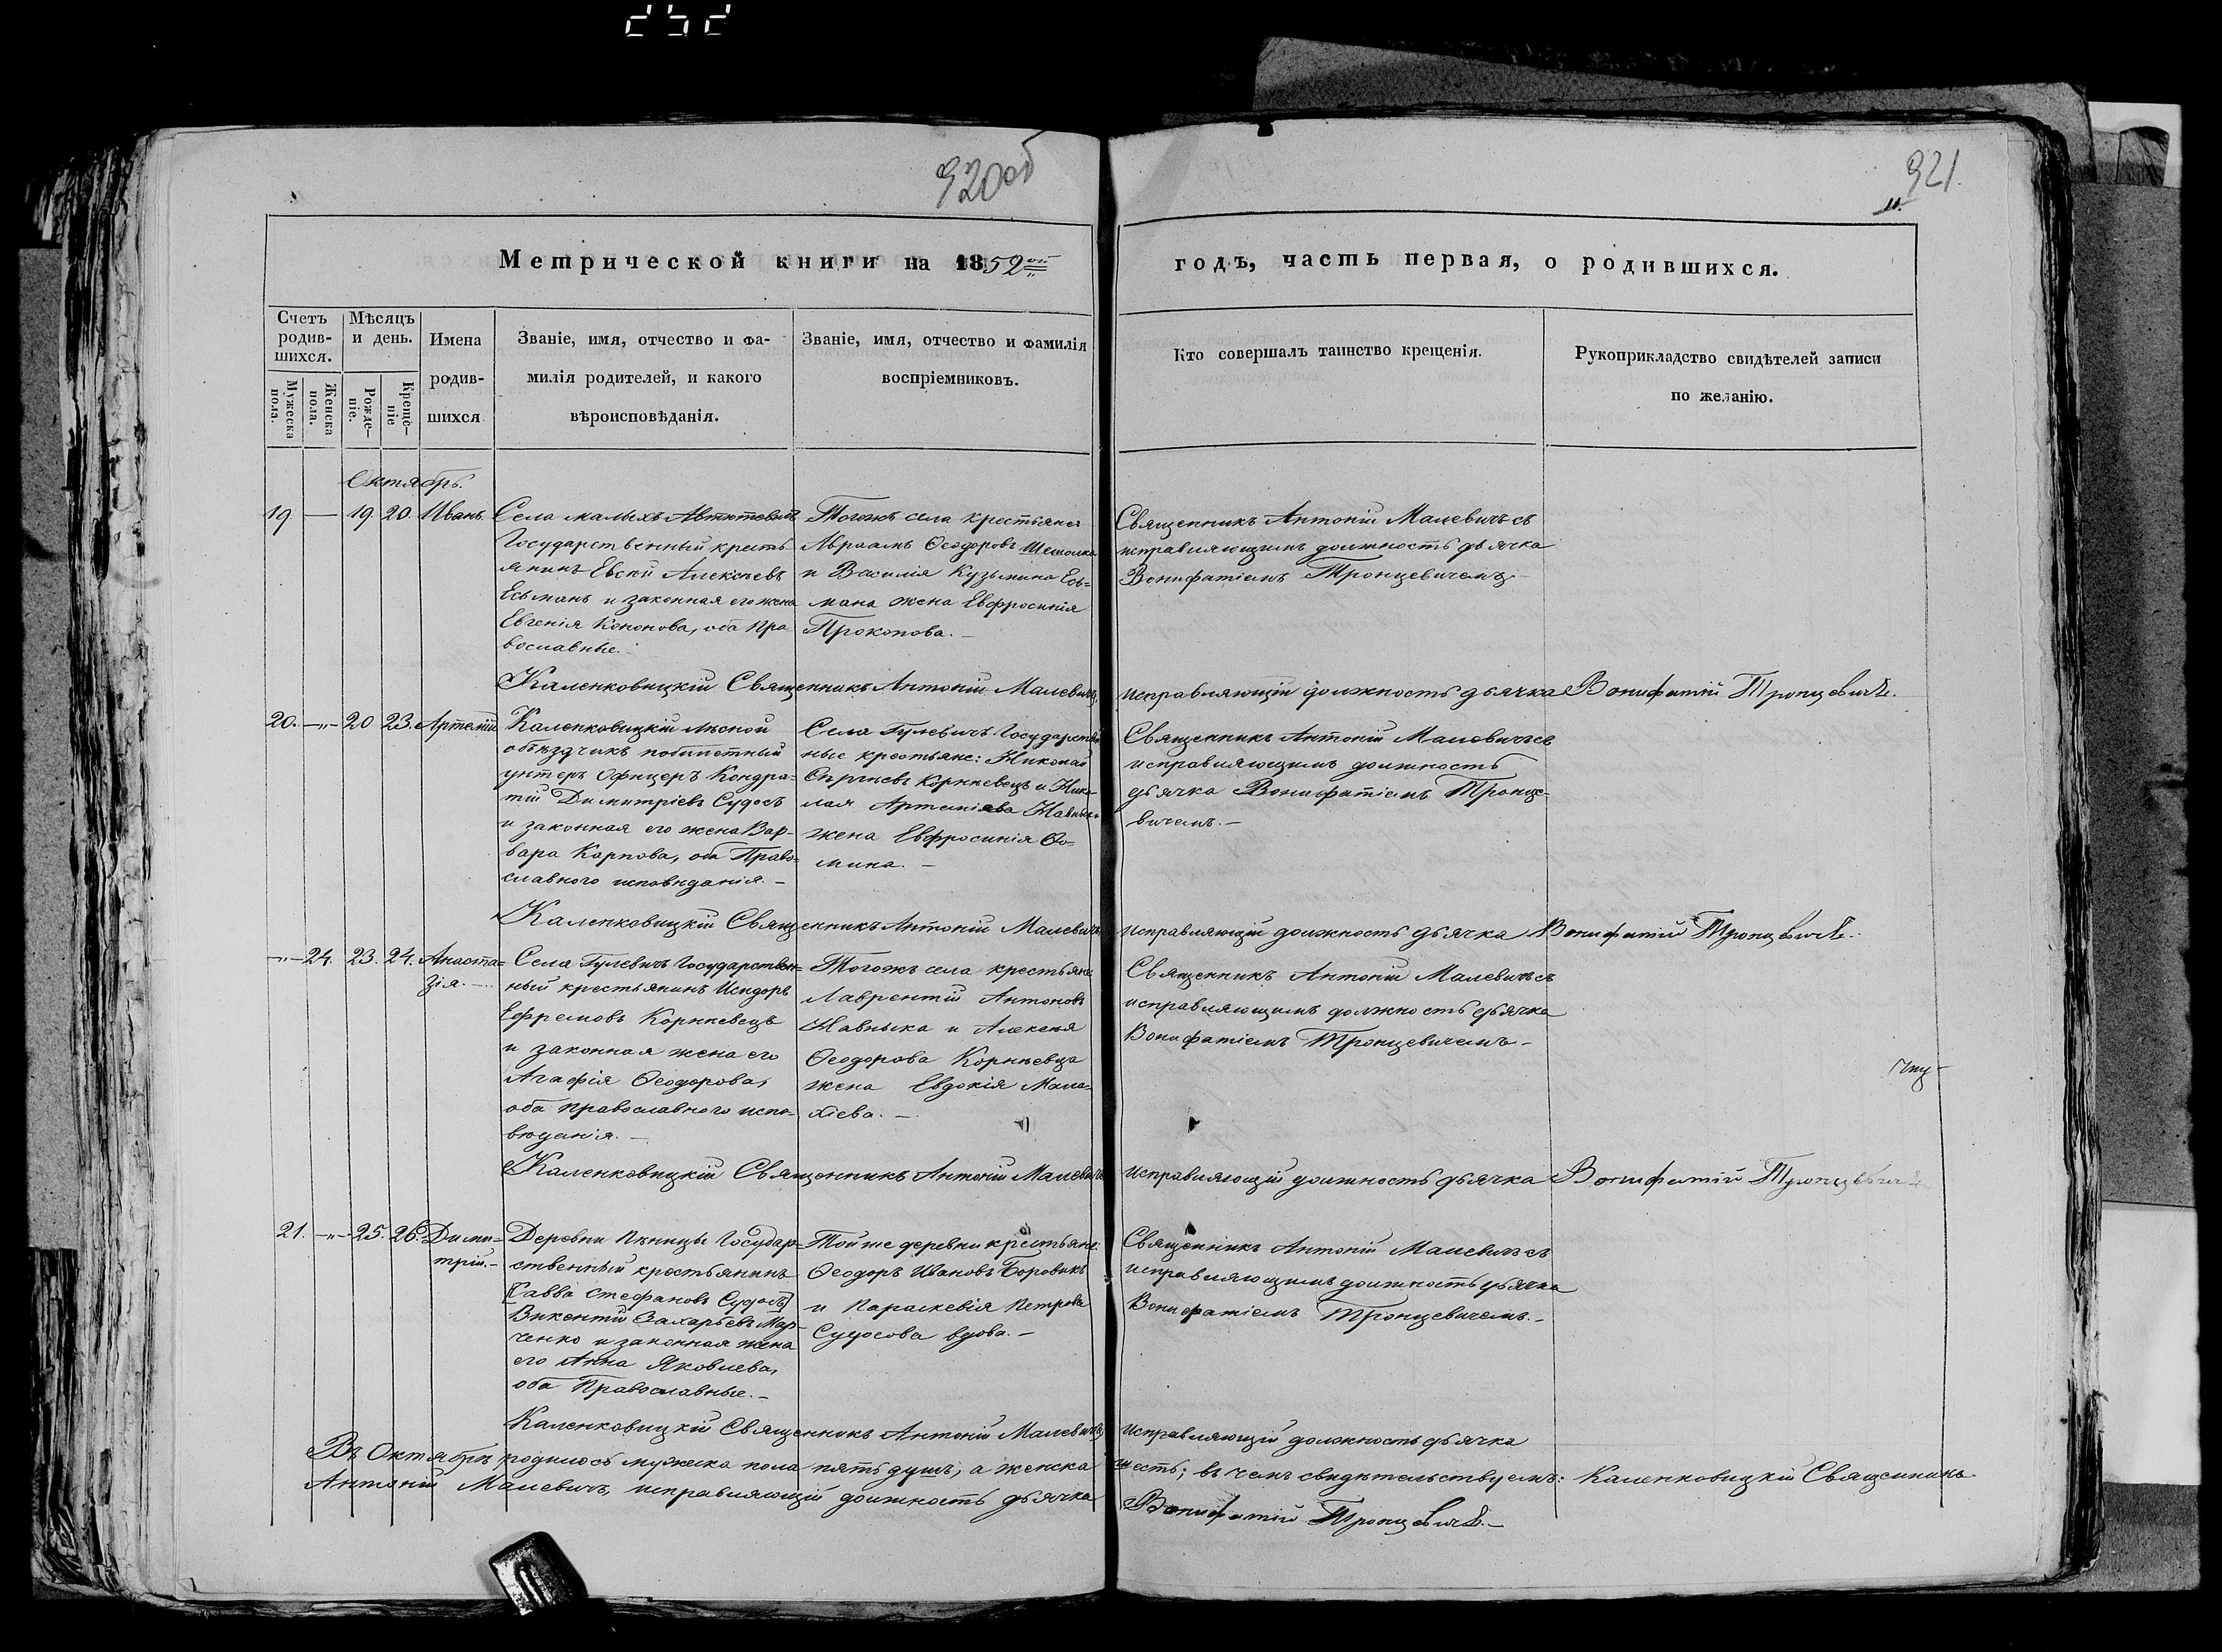 252
920 об
921.
11.
Метрической книги на 1852ой
годъ, часть первая, о родившихся.
Счетъ родив-шихся.
Мужеска пола.
Женска пола.
Мѣсяцъ и день.
Рожде-ніе.
Креще-ніе
Имена родив-шихся
Званіе, имя, отчество и фа-
милія родителей, и какого
вѣроисповѣданія.
Званіе, имя, отчество и фамилія
воспріемниковъ.
Кто совершалъ таинство крещенія.
Рукоприкладство свидѣтелей записи
по желанію.
Октябрь.
19 — 19. 20. Иванъ.
Села малыхъ Автютевичъ
Государственный кресть-
янинъ Евсей Алексѣевъ
Есьманъ и законная его жена
Евгенія Кононова, оба пра
вославные.
Тогожъ села крестьяне:
Авраамъ Ѳеодоровъ
и Василія Кузьмина Есь=
мана жена Евфросинія
Прокопова. —
Священникъ Антоній Малевичъ съ
исправляющимъ должность дьячка
Вонифатіемъ Тронцевичемъ.
Каленковицкій Священникъ Антоній Малевичъ,
исправляющій должность дьячка Вонифатій Тронцевичъ.
20. —„— 20 23. Артемій
Каленковицкій лѣсной
объѣздчикъ
унтеръ Офицеръ Кондра-
тій Димитріевъ Судосъ
и законная его жена Вар-
вара Карпова, оба Право-
славного исповѣданія. —
Села Гулевичъ Государствен
ные крестьяне: Николай
Сергѣевъ Корнѣевецъ и Нико-
лая Артеміева
жена Евфросинія Ѳо=
мина. —
Священникъ Антоній Малевичъ съ
исправляющимъ должность
дьячка Вонифатіемъ Тронце-
вичемъ. —
Каленковицкій Священникъ Антоній Малевичъ,
исправляющій должность дьячка Вонифатій Тронцевичъ.
—„— 24. 23. 24. Анаста=
зія. —
Села Гулевичъ Государствен=
ный крестьянинъ Исидоръ
Ефремовъ Корнѣевецъ
и законная жена его
Агафія Ѳеодорова,
оба православного испо-
вѣданія. —
Тогожъ села крестьяне
Лаврентій Антоновъ
и Алексѣя
Ѳеодорова Корнѣевца
жена Евдокія Мала-
хіева. —
Священникъ Антоній Малевичъ съ
исправляющимъ должность дьячка
Вонифатіемъ Тронцевичемъ —
Каленковицкій Священникъ Антоній Малевичъ
исправляющій должность дьячка Вонифатій Тронцевичъ
21. —„— 25. 26. Дими=
трій. —
Деревни Пѣницы Государ-
ственный крестьянинъ
[Савва Стефановъ Судосъ]
Викентій Захарьевъ Мар-
ченко и законная жена
его Анна Яковлева,
оба Православные. —
Тойже деревни крестьяне:
Ѳеодоръ Ивановъ Боровикъ
и Параскевія Петрова
Судосова вдова. —
Священникъ Антоній Малевичъ съ
исправляющимъ должность дьячка
Вонифатіемъ Тронцевичемъ. —
Каленковицкій Священникъ Антоній Малевичъ,
исправляющій должность дьячка
Въ Октябрѣ родилось мужеска пола пять душъ, а женска
шесть; въ чемъ свидѣтельствуемъ: Каленковицкій Священникъ
Антоній Малевичъ, исправляющій должность дьячка
Вонифатій Тронцевичъ. —